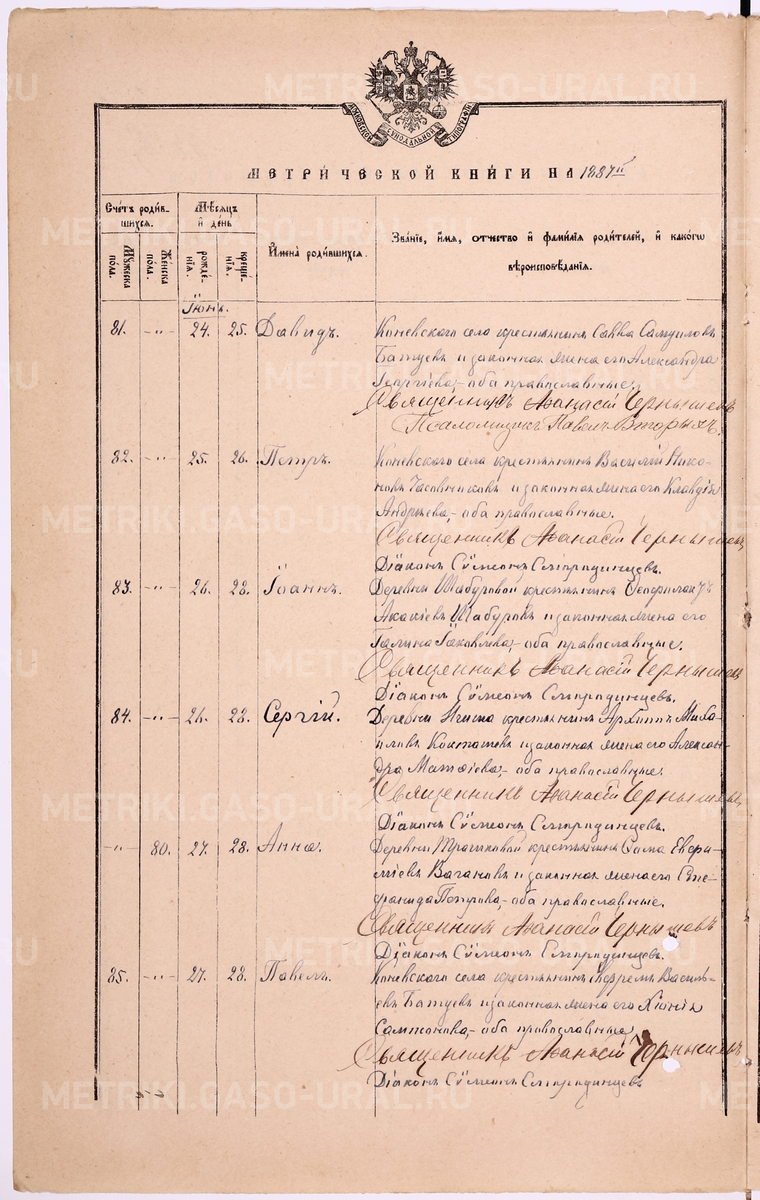 МОСКОВСКОЙ СѴНОДАЛЬНОЙ ТИПОГРАФІИ
МЕТРИЧЕСКОЙ КНИГИ НА 1887 г.
Счетъ родив-
шихся.
Мужеска пола.
Женска пола.
Мѣсяцъ и день
рожде-
нія.
креще-
нія.
Имена родившихся.
Званіе, имя, отчество и фамилія родителей, и какогѡ
вѣроисповѣданія.
Іюнь.
81. -"- 24. 25. Давидъ. Коневского села крестьянинъ Савва Самуиловъ
Батуевъ и законная жена его Александра
Георгіева,- оба православные.
Священникъ Аѳанасій Чернышевъ
Псаломщикъ Павелъ Вторыхъ.
82. -"- 25. 26. Петръ. Коневского села крестьянинъ Василій Нико-
новъ Часовниковъ и законная жена его Клавдія
Андреева,- оба православные.
Священникъ Аѳанасій Чернышевъ
Діаконъ Сѵмеонъ Смородинцевъ.
83. -"- 26. 28. Іоаннъ. Деревни Шабуровой крестьянинъ Ѳеофилактъ
Акакіевъ Шабуровъ и законная жена его
Галина Іаковлева,- оба православные.
Священникъ Аѳанасій Чернышевъ
Діаконъ Сѵмеонъ Смородинцевъ.
84. -"- 26. 28. Сергій. Деревни крестьянинъ Архиппъ Миха-
иловъ и законная жена его Алексан-
дра Матѳіева,- оба православные.
Священникъ Аѳанасій Чернышевъ
Діаконъ Сѵмеонъ Смородинцевъ.
-"- 80. 27. 28. Анна. Деревни крестьянинъ Савва Евфи-
міевъ Вагановъ и законная жена его Сте-
фанида Петрова,- оба православные.
Священникъ Аѳанасій Чернышевъ
Діаконъ Сѵмеонъ Смородинцевъ.
85. -"- 27. 28. Павелъ. Коневского села крестьянинъ Ефремъ Василь-
евъ Батуевъ и законная жена его Ксенія
Сампсонова,- оба православные
Священникъ Аѳанасій Чернышевъ
Діаконъ Сѵмеонъ Смородинцевъ
METRIKI.GASO-URAL.RU